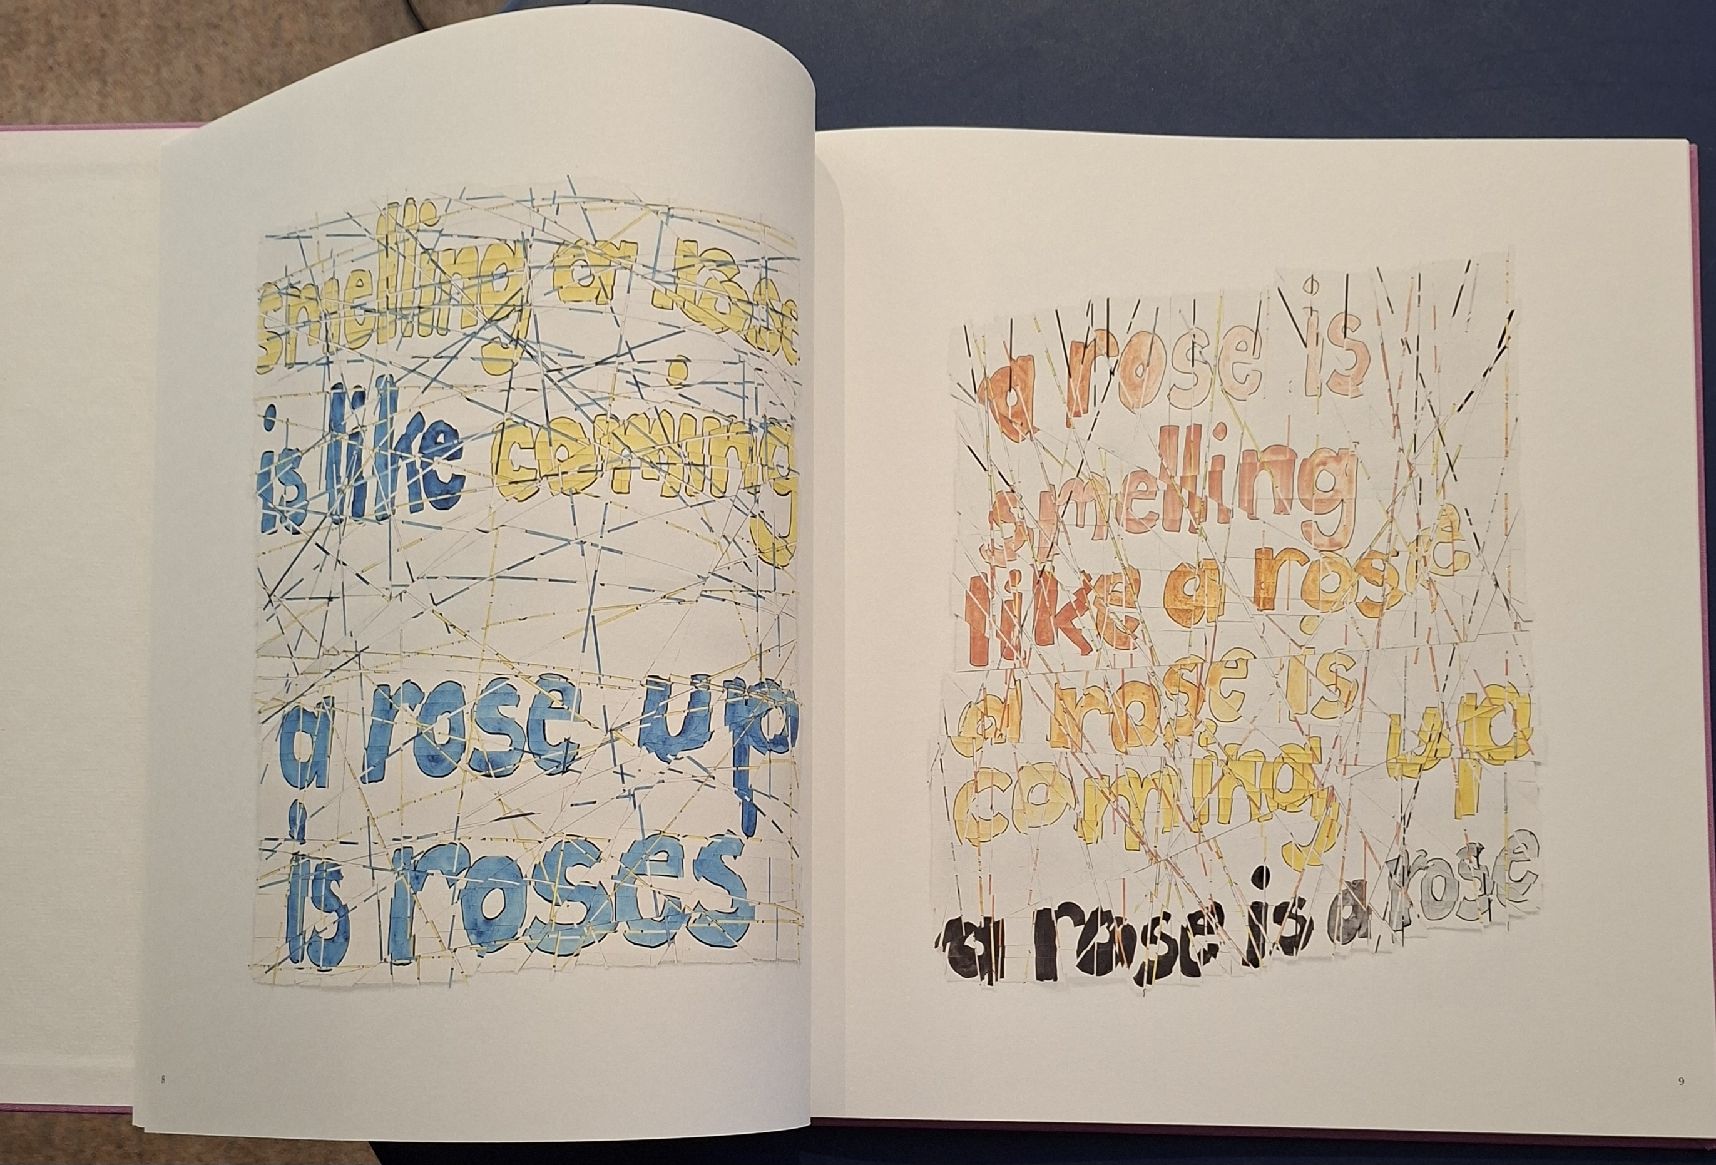 smelling a rose
is like coming
a rose up
is roses
8
a rose is
smelling
like a rose
a rose is
coming up
a rose is a rose
9